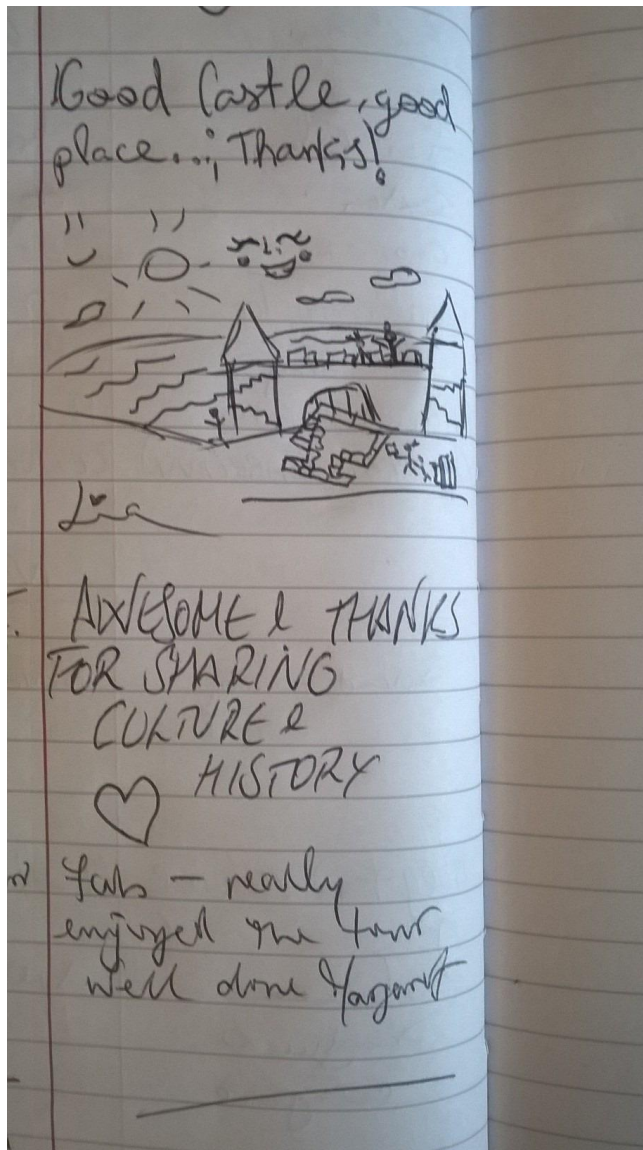 Good Castle, good
place...; Thanks!
Lia
AWESOME & THANKS
FOR SHARING
CULTURE &
HISTORY
Fab — really
enjoyed the tour
well done Margaret